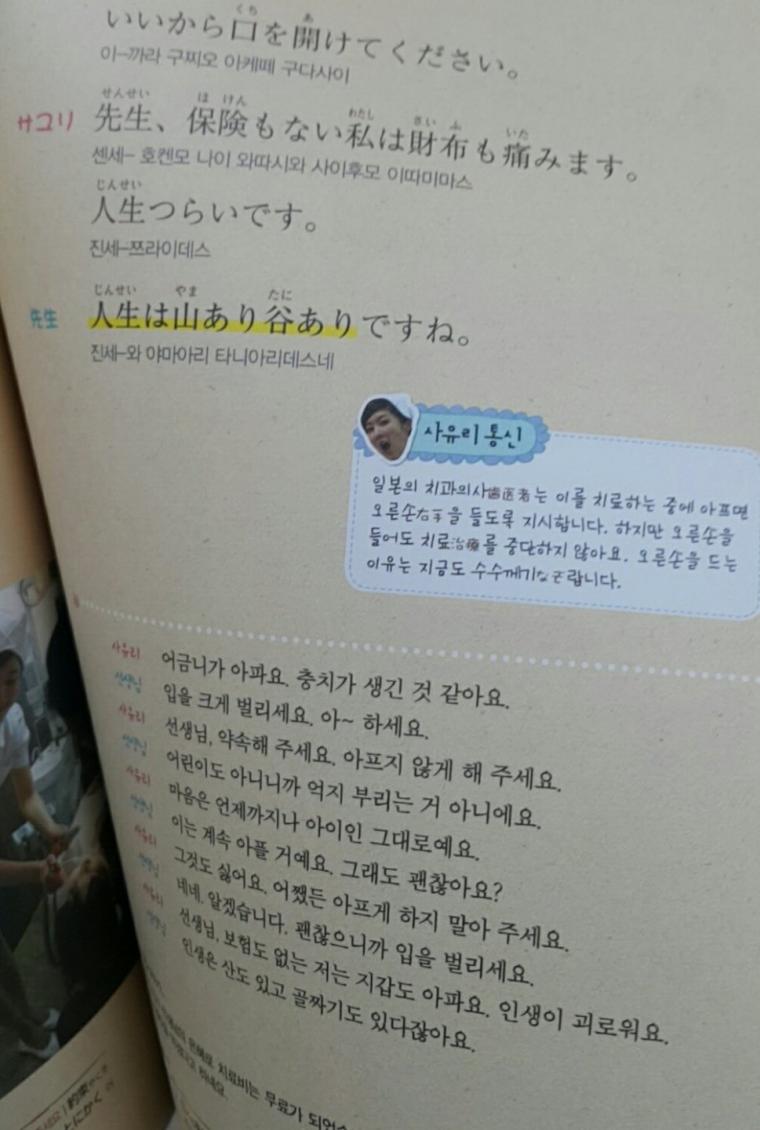 いいから口を開けてください。
이-까라 구찌오 아케떼 구다사이
サユリ 先生、保険もない私は財布も痛みます。
센세- 호켄모 나이 와따시와 사이후모 이따미마스
人生つらいです。
진세-쯔라이데스
先生 人生は山あり谷ありですね。
진세-와 야마아리 타니아리데스네
사유리 통신
일본의 치과의사歯医者는 이를 치료하는 중에 아프면
오른손右手을 들도록 지시합니다. 하지만 오른손을
들어도 치료治療를 중단하지 않아요. 오른손을 드는
이유는 지금도 수수께끼なぞ랍니다.
사유리 어금니가 아파요. 충치가 생긴 것 같아요.
선생님 입을 크게 벌리세요. 아~ 하세요.
사유리 선생님, 약속해 주세요. 아프지 않게 해 주세요.
선생님 어린이도 아니니까 억지 부리는 거 아니에요.
사유리 마음은 언제까지나 아이인 그대로예요.
선생님 이는 계속 아플 거예요. 그래도 괜찮아요?
사유리 그것도 싫어요. 어쨌든 아프게 하지 말아 주세요.
선생님 네네. 알겠습니다. 괜찮으니까 입을 벌리세요.
사유리 선생님, 보험도 없는 저는 지갑도 아파요. 인생이 괴로워요.
선생님 인생은 산도 있고 골짜기도 있다잖아요.
치료비는 무료가 되었